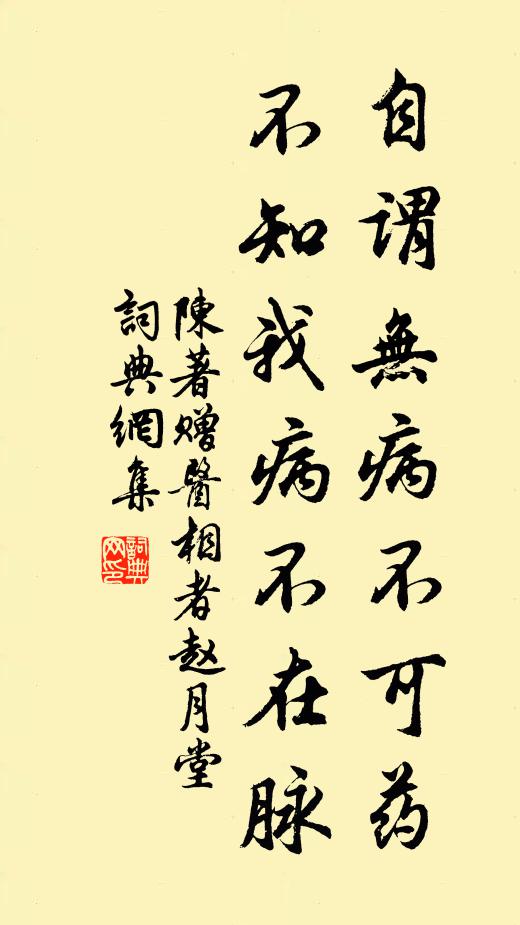 自謂無病不可药
不知我病不在脉
陳著赠醫相者赵月堂
詞典網集
詞典
网印